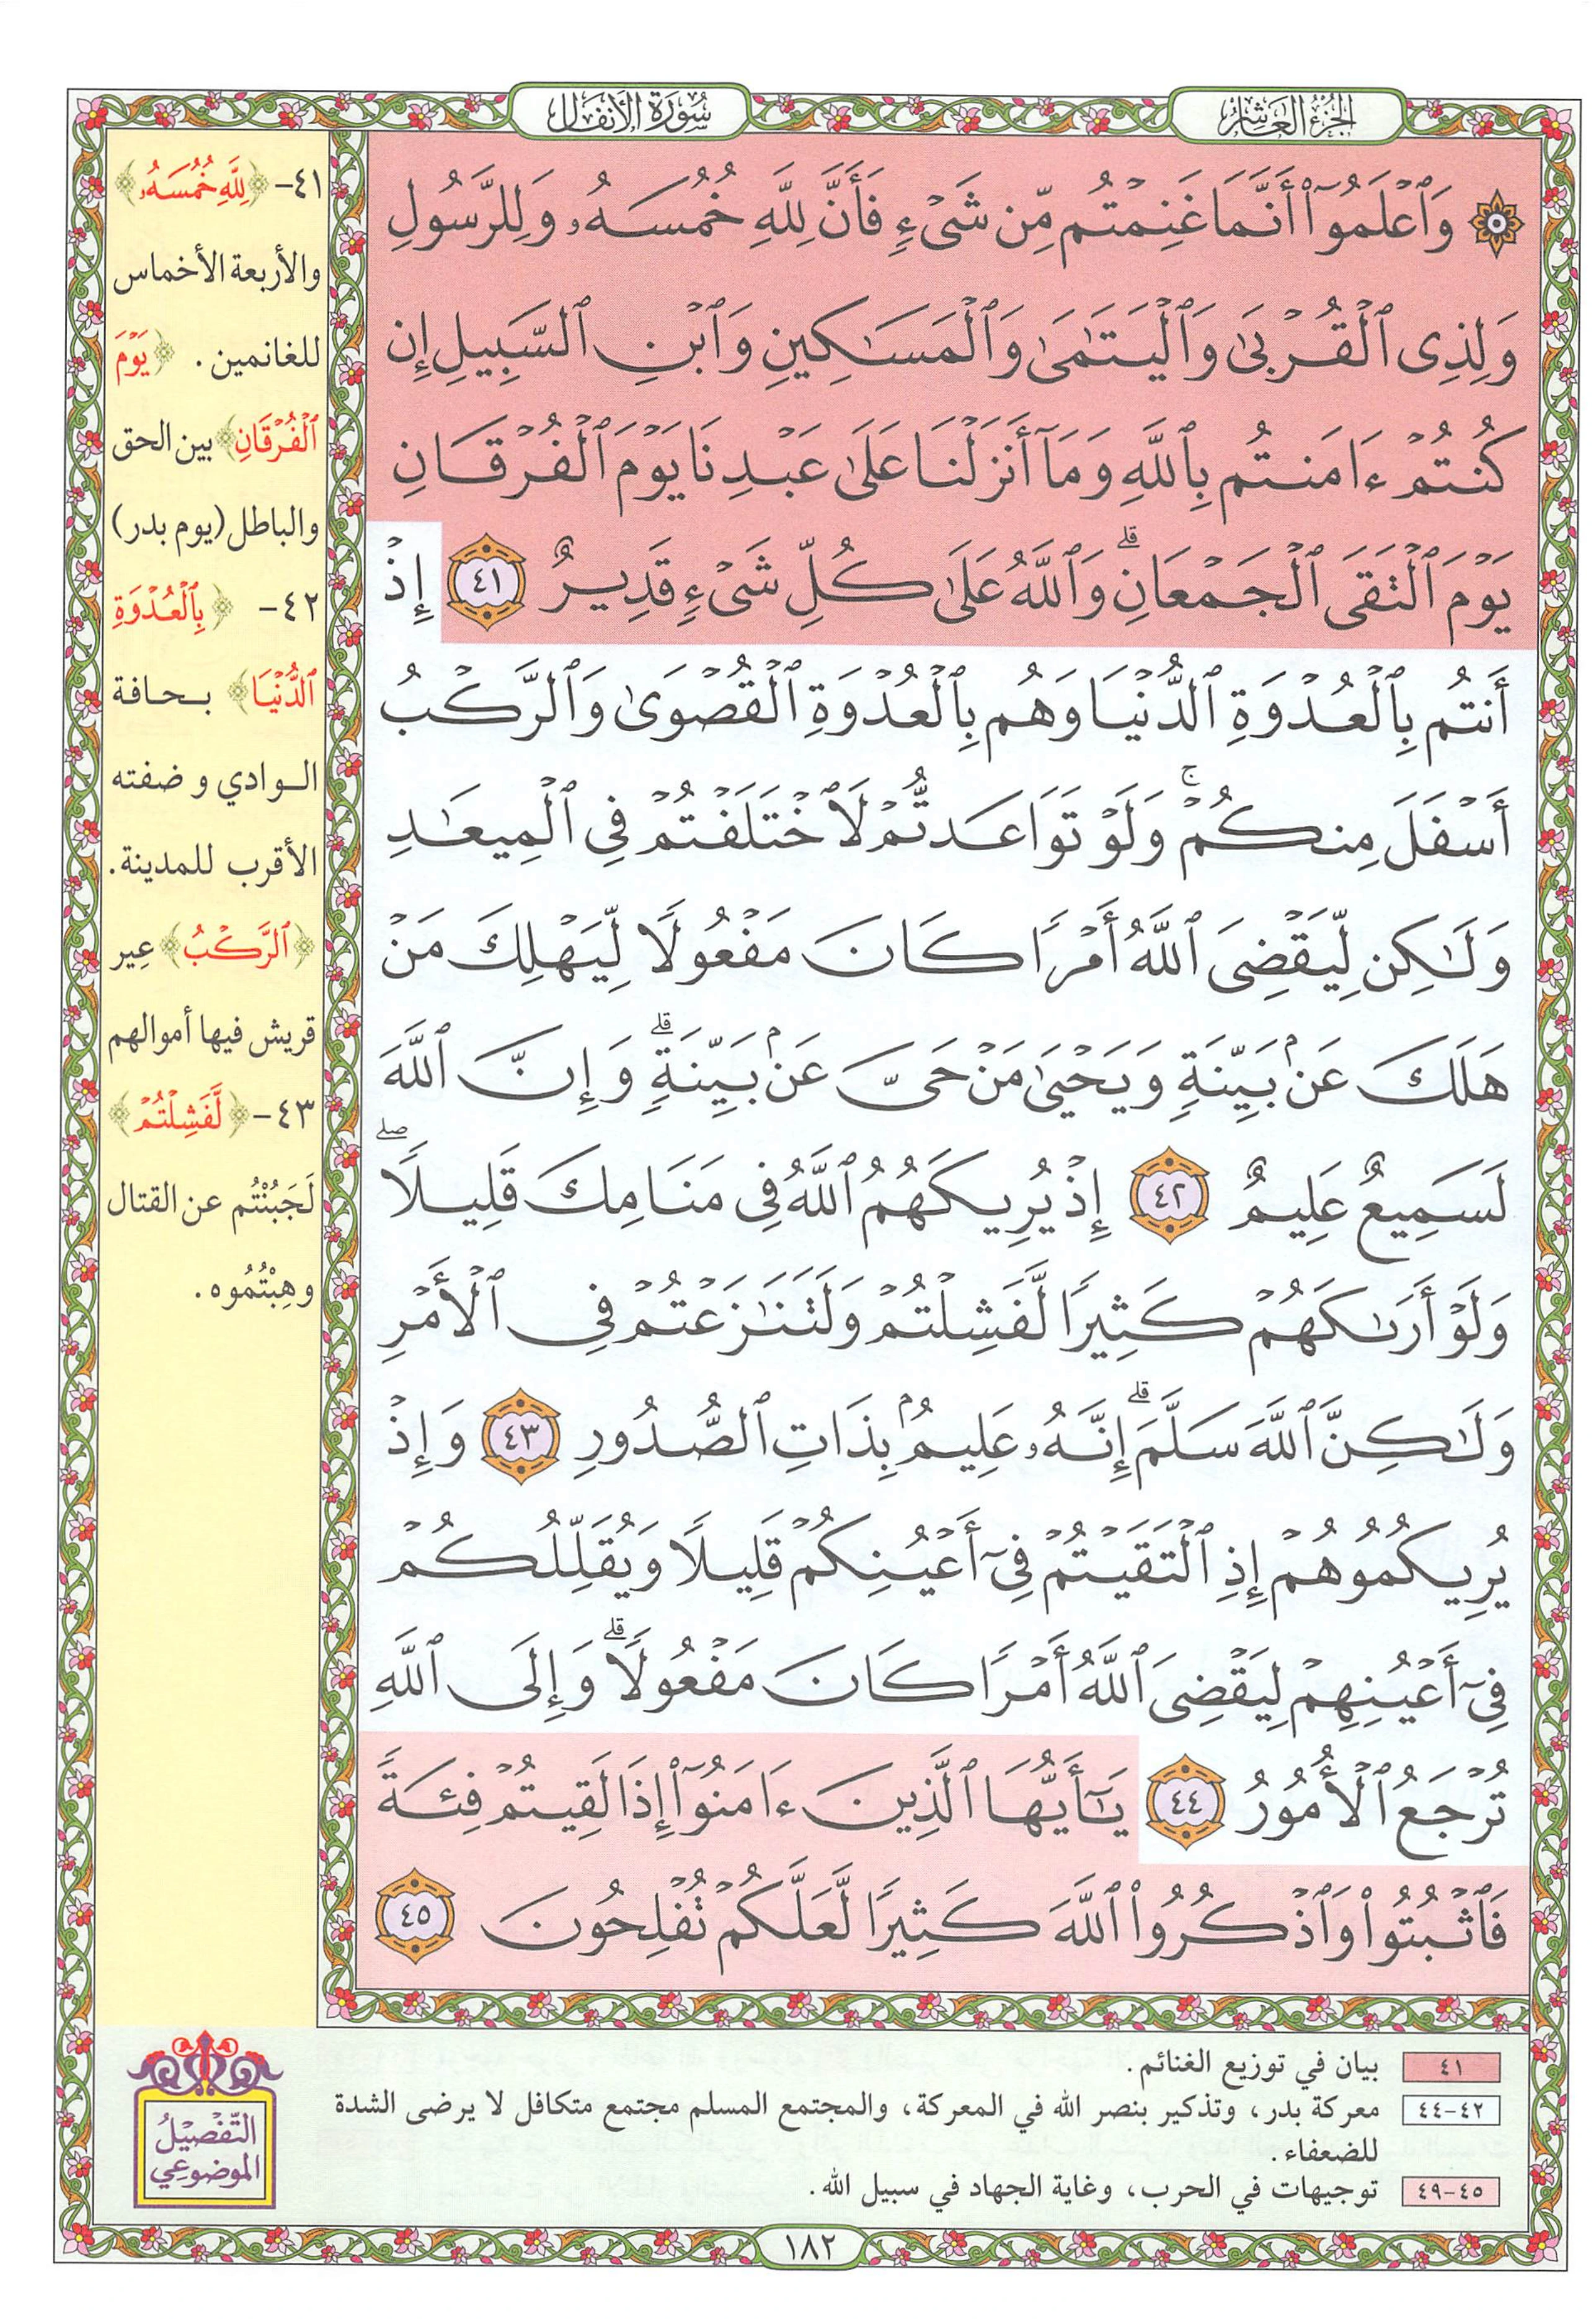 الجزء العاشر
سورة الأنفال
۞ وَٱعۡلَمُوٓاْ أَنَّمَا غَنِمۡتُم مِّن شَيۡءٖ فَأَنَّ لِلَّهِ خُمُسَهُۥ وَلِلرَّسُولِ
وَلِذِي ٱلۡقُرۡبَىٰ وَٱلۡيَتَٰمَىٰ وَٱلۡمَسَٰكِينِ وَٱبۡنِ ٱلسَّبِيلِ إِن
كُنتُمۡ ءَامَنتُم بِٱللَّهِ وَمَآ أَنزَلۡنَا عَلَىٰ عَبۡدِنَا يَوۡمَ ٱلۡفُرۡقَانِ
يَوۡمَ ٱلۡتَقَى ٱلۡجَمۡعَانِۗ وَٱللَّهُ عَلَىٰ كُلِّ شَيۡءٖ قَدِيرٌ ٤١ إِذۡ
أَنتُم بِٱلۡعُدۡوَةِ ٱلدُّنۡيَا وَهُم بِٱلۡعُدۡوَةِ ٱلۡقُصۡوَىٰ وَٱلرَّكۡبُ
أَسۡفَلَ مِنكُمۡۚ وَلَوۡ تَوَاعَدتُّمۡ لَٱخۡتَلَفۡتُمۡ فِي ٱلۡمِيعَٰدِ
وَلَٰكِن لِّيَقۡضِيَ ٱللَّهُ أَمۡرٗا كَانَ مَفۡعُولٗا لِّيَهۡلِكَ مَنۡ
هَلَكَ عَنۢ بَيِّنَةٖ وَيَحۡيَىٰ مَنۡ حَيَّ عَنۢ بَيِّنَةٖۗ وَإِنَّ ٱللَّهَ
لَسَمِيعٌ عَلِيمٌ ٤٢ إِذۡ يُرِيكَهُمُ ٱللَّهُ فِي مَنَامِكَ قَلِيلٗاۖ
وَلَوۡ أَرَىٰكَهُمۡ كَثِيرٗا لَّفَشِلۡتُمۡ وَلَتَنَٰزَعۡتُمۡ فِي ٱلۡأَمۡرِ
وَلَٰكِنَّ ٱللَّهَ سَلَّمَۗ إِنَّهُۥ عَلِيمُۢ بِذَاتِ ٱلصُّدُورِ ٤٣ وَإِذۡ
يُرِيكُمُوهُمۡ إِذِ ٱلۡتَقَيۡتُمۡ فِيٓ أَعۡيُنِكُمۡ قَلِيلٗا وَيُقَلِّلُكُمۡ
فِيٓ أَعۡيُنِهِمۡ لِيَقۡضِيَ ٱللَّهُ أَمۡرٗا كَانَ مَفۡعُولٗاۗ وَإِلَى ٱللَّهِ
تُرۡجَعُ ٱلۡأُمُورُ ٤٤ يَٰٓأَيُّهَا ٱلَّذِينَ ءَامَنُوٓاْ إِذَا لَقِيتُمۡ فِئَةٗ
فَٱثۡبُتُواْ وَٱذۡكُرُواْ ٱللَّهَ كَثِيرٗا لَّعَلَّكُمۡ تُفۡلِحُونَ ٤٥
٤١- ﴿لِلَّهِ خُمُسَهُۥ﴾
والأربعة الأخماس
للغانمين. ﴿يَوۡمَ
ٱلۡفُرۡقَانِ﴾ بين الحق
والباطل (يوم بدر)
٤٢- ﴿بِٱلۡعُدۡوَةِ
ٱلدُّنۡيَا﴾ بحافة
الوادي و ضفته
الأقرب للمدينة.
﴿ٱلرَّكۡبُ﴾ عِير
قريش فيها أموالهم
٤٣- ﴿لَّفَشِلۡتُمۡ﴾
لَجَبُنْتُم عن القتال
وهِبْتُمُوه.
٤١ بيان في توزيع الغنائم.
٤٢-٤٤ معركة بدر، وتذكير بنصر الله في المعركة، والمجتمع المسلم مجتمع متكافل لا يرضى الشدة
للضعفاء.
٤٥-٤٩ توجيهات في الحرب، وغاية الجهاد في سبيل الله.
التَّفْصِيْلُ
الموضوعي
١٨٢